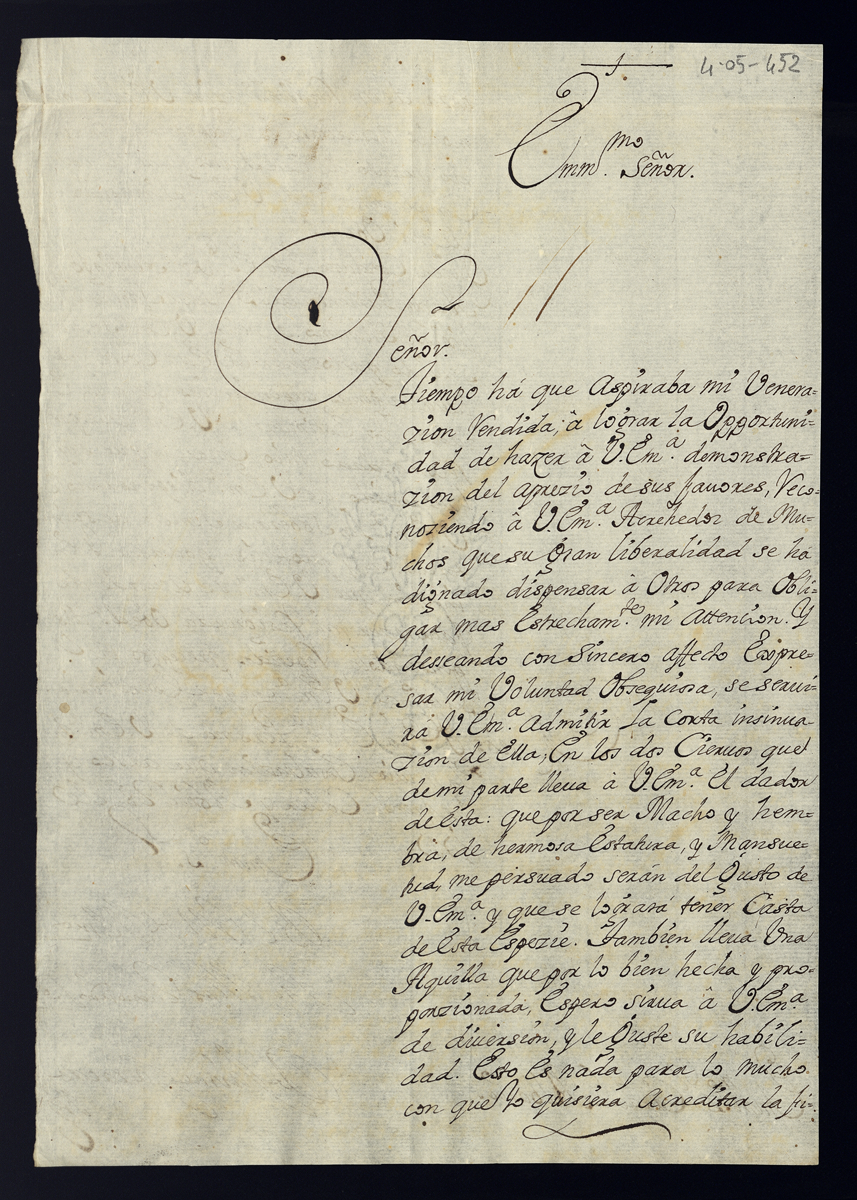 4-05-452
Emm.mo Señor.
Señor.
Tiempo há que Aspiraba mi Venera-
zion Rendida, â lograr la Opportuni-
dad de hazer â V.Em.a demonstra-
zion del aprezio de sus fauores, Reco-
noziendo â V.Em.a Acrehedor de Mu-
chos que su Gran liberalidad se ha
dignado dispensar à Otros para Obli-
gár mas Estrecham.te mi Attencion. Y
desseando con Sincero affecto Expre-
sar mi Voluntad Obsequiosa, se serui-
rá V.Em.a Admitir La corta insinua
zion de Ella, En los dos Cieruos que
de mi parte lleua à V.Em.a El dador
de Esta: que por ser Macho y hem-
bra, de hermosa Estatura, y Mansue-
tud, me persuado serán del Gusto de
V.Em.a y que se logrará tener Casta
de Esta Espezie. Tambien lleua Una
Aguilla que por lo bien hecha y pro-
porzionada, Espero sirua â V.Em.a
de diversion, y le Guste su habili-
dad. Esto Es nada para lo mucho
con que Yo quisiera Acreditar la fi-